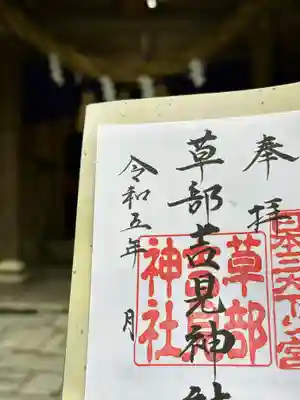 奉拝
日本三大下り宮
草部吉見神社
草部
吉見
神社
令和五年 月